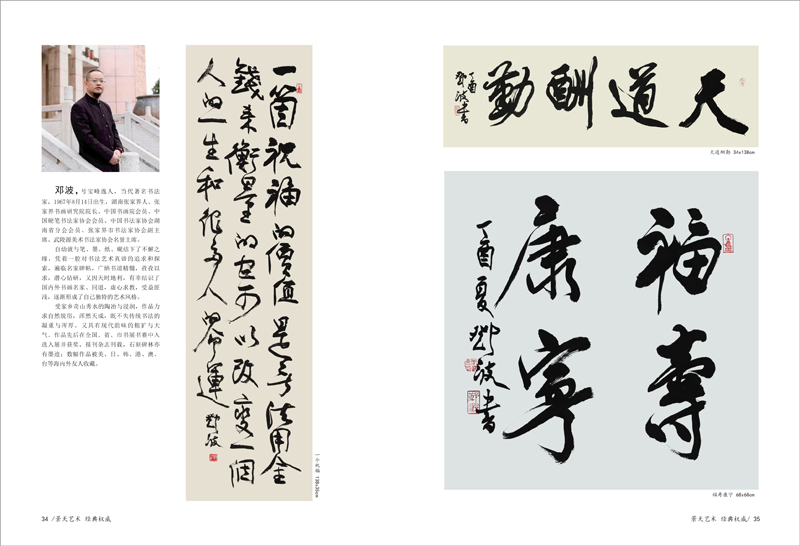 邓波，号宝峰逸人，当代著名书法
家。1967年8月14日出生，湖南张家界人。张
家界书画研究院院长、中国书画院会员、中
国硬笔书法家协会会员、中国书法家协会湖
南省分会会员、张家界市书法家协会副主
席、武陵源美术书法家协会名誉主席。
自幼就与笔、墨、纸、砚结下了不解之
缘，凭着一腔对书法艺术真谛的追求和探
索，遍临名家碑帖，广纳书道精髓，孜孜以
求，潜心钻研，又因天时地利，有幸结识了
国内外书画名家、同道，虚心求教，受益匪
浅，逐渐形成了自己独特的艺术风格。
受家乡奇山秀水的陶冶与浸润，作品力
求自然脱俗，浑然天成，既不失传统书法的
凝重与浑厚，又具有现代韵味的粗犷与大
气。作品先后在全国、省、市书展书赛中入
选入展并获奖，报刊杂志刊载，石刻碑林亦
有墨迹；数幅作品被美、日、韩、港、澳、
台等海内外友人收藏。
一箇祝福的價值是无法用金
錢来衡量的它可以改變一個
人的一生和很多人的命運
鄧波
一个祝福 138x35cm
34 /景天艺术 经典权威
天道酬勤
丁酉
鄧波书
天道酬勤 34x138cm
福壽
康寧
丁酉夏鄧波书
福寿康宁 68x68cm
景天艺术 经典权威/ 35